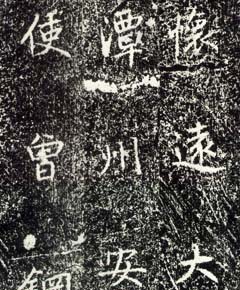 懷遠大
潭州安
使曾鋼